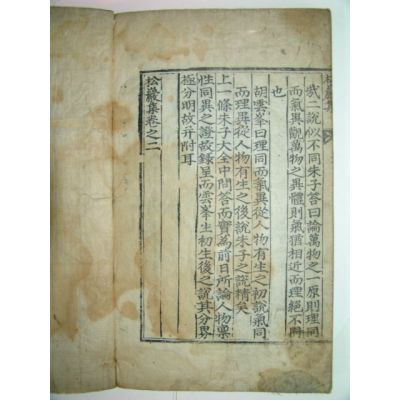 松巖集
二說似不同朱子答曰論萬物之一原則理同
而氣異觀萬物之異體則氣猶相近而理絕不同
也
胡雲峯曰理同而氣異從人物有生之初說氣同
而理異從人物有生之後說朱子之說精矣
上一條朱子大全中問答而實為前日所論人物稟
性同異之證故錄呈而雲峯生初生後之說其分界
極分明故并附耳
松巖集卷之二